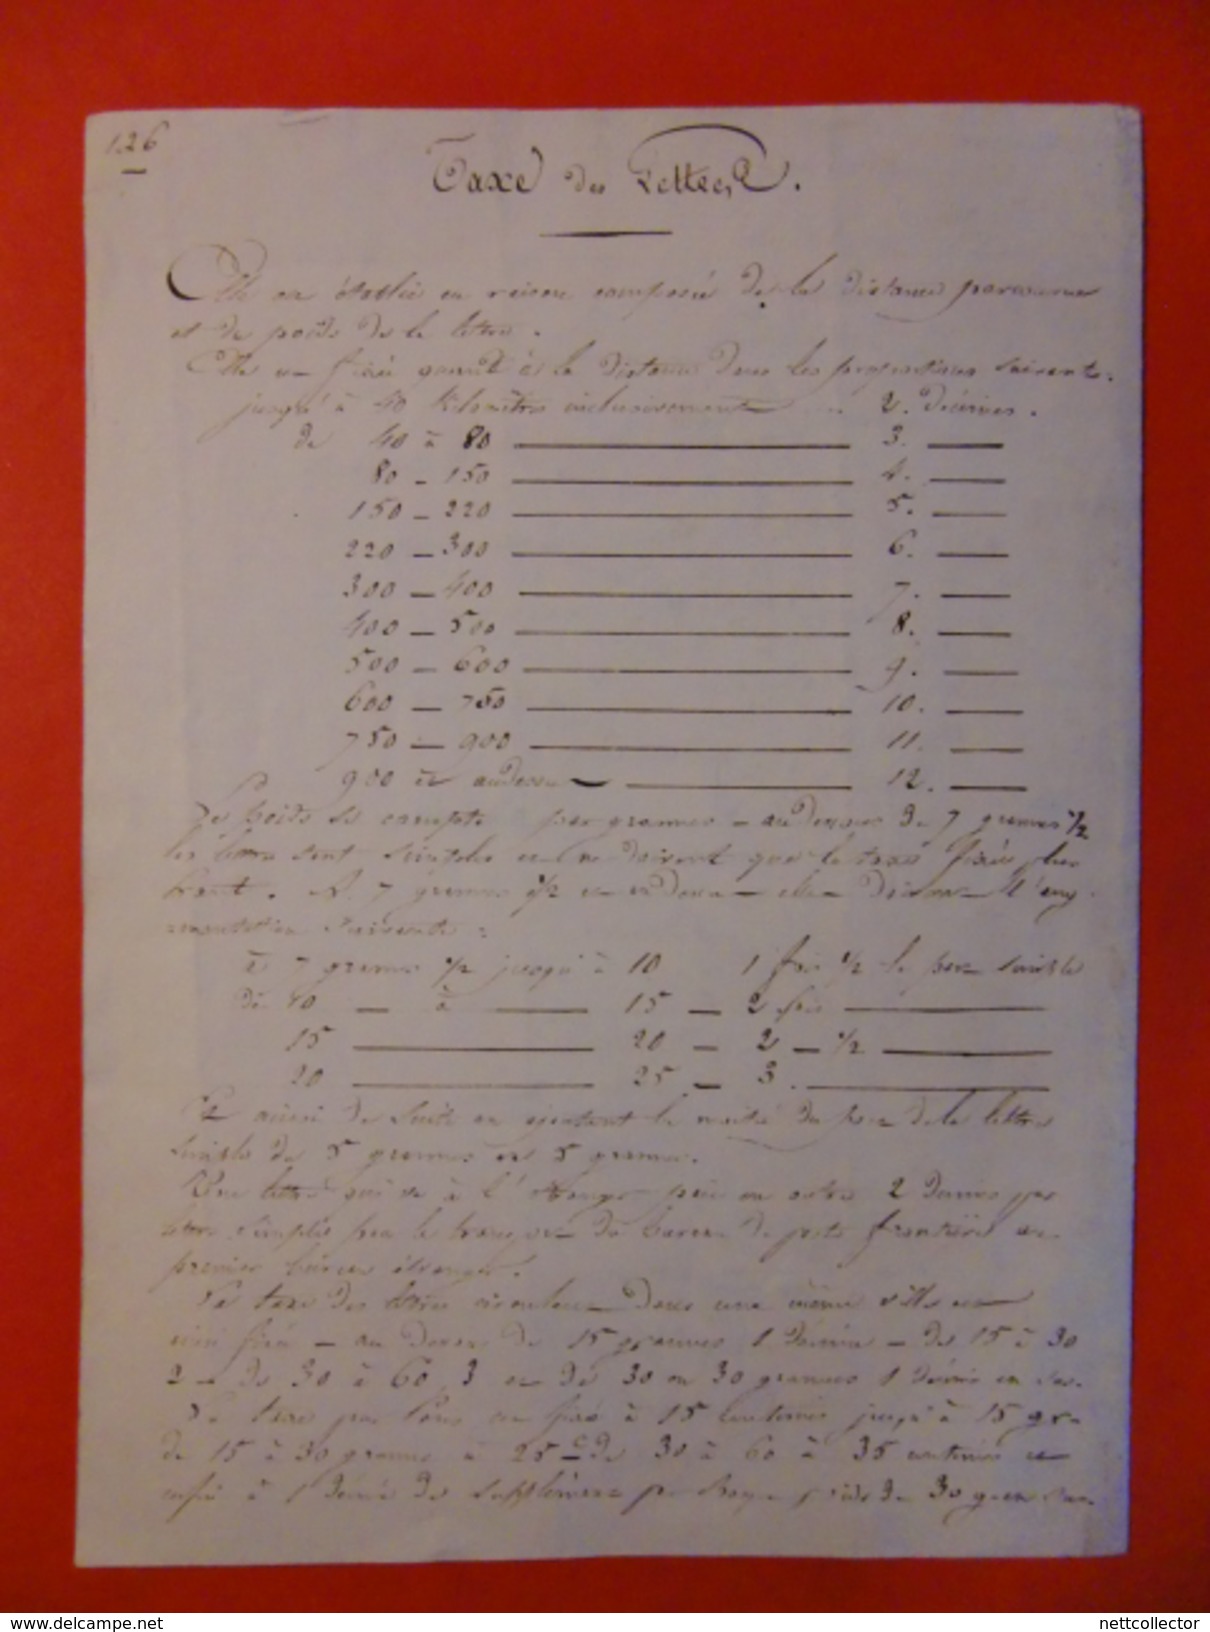 126
Taxe des Lettres.
Elle est établie en raison composée de la distance parcourue
et du poids de la lettre.
Elle est fixée quant à la distance dans les proportions suivantes.
jusqu'à 40 kilomètres inclusivement ... 2. Décimes.
de 40 à 80 — 3. —
80 — 150 — 4. —
150 — 220 — 5. —
220 — 300 — 6. —
300 — 400 — 7. —
400 — 500 — 8. —
500 — 600 — 9. —
600 — 750 — 10. —
750 — 900 — 11. —
900 et audessus — 12. —
Le poids se compte par grammes — au dessous de 7 grammes 1/2
les lettres sont simples et ne doivent que la taxe fixée plus
haut. A 7 grammes 1/2 et au dessus elles doivent l'aug
mentation suivante :
à 7 grammes 1/2 jusqu'à 10 1 fois 1/2 le port simple
de 10 — à — 15 — 2 fois —
15 — 20 — 2 — 1/2 —
20 — 25 — 3. —
Et ainsi de suite en ajoutant la moitié du port de la lettre
simple de 5 grammes en 5 grammes.
Une lettre qui va à l'étranger paie en outre 2 décimes par
lettre simple pour le transport du bureau de poste frontière au
premier bureau étranger.
La taxe des lettres circulant dans une même ville est
ainsi fixée — au dessous de 15 grammes 1 décime — de 15 à 30
2 — de 30 à 60 3 et de 30 en 30 grammes 1 décime en sus.
La taxe pour Paris est fixée à 15 centimes jusqu'à 15 gr.
de 15 à 30 grammes à 25 c. de 30 à 60 à 35 centimes et
enfin à 1 décime de supplément par chaque poids de 30 grammes
delcampe.net
nettcollector